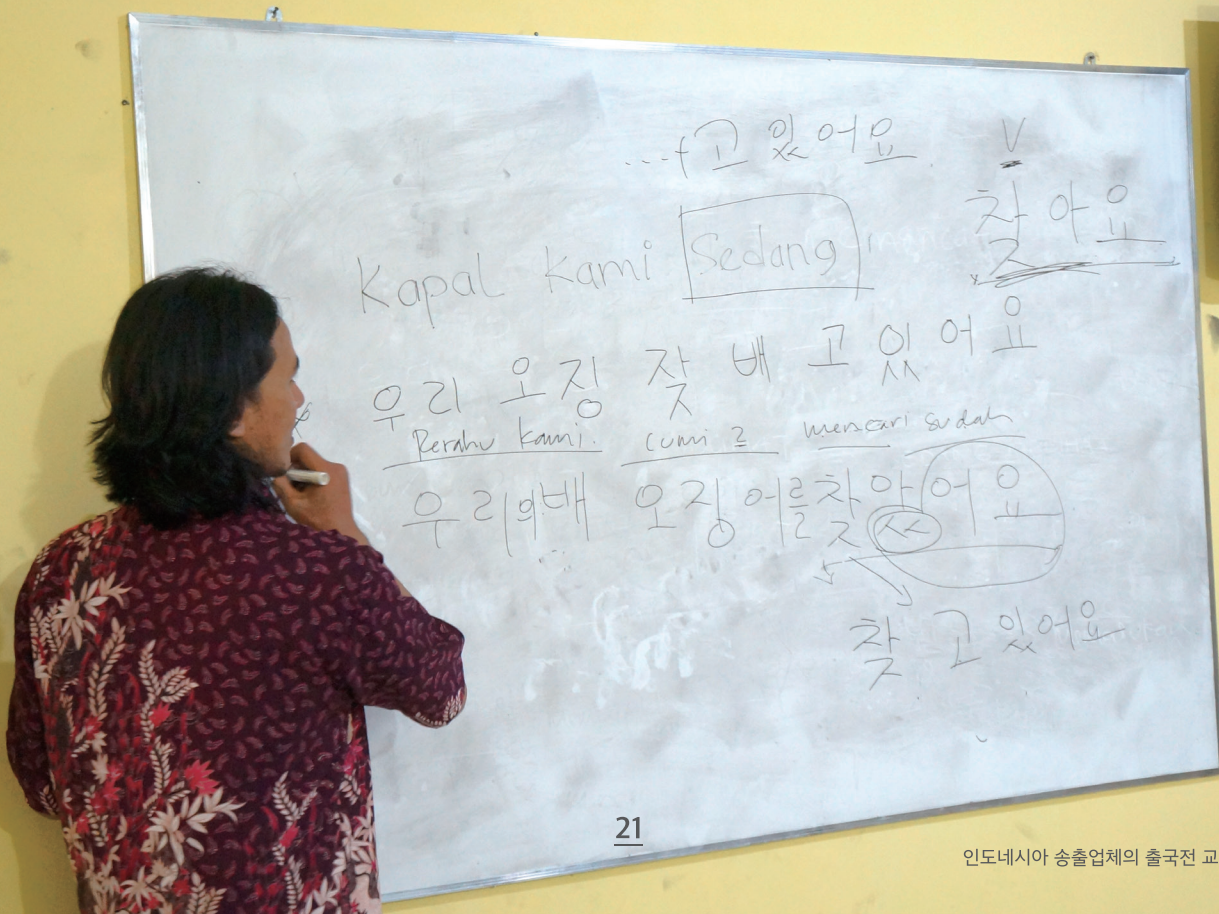 ...+고 있어요. V
찾아요
Kapal Kami Sedang
우리 오징 잦 배 고 있어요
Perahu Kami. cumi 2 mencari sudah
우리의배 오징어를찾았어요
찾 고 있어요
21
인도네시아 송출업체의 출국전 교